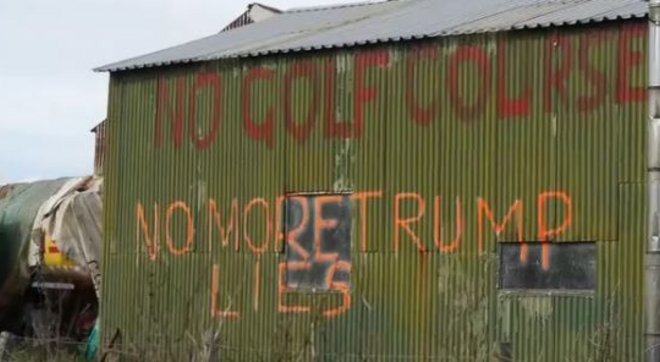 NO GOLF COURSE
NO MORE TRUMP
LIES